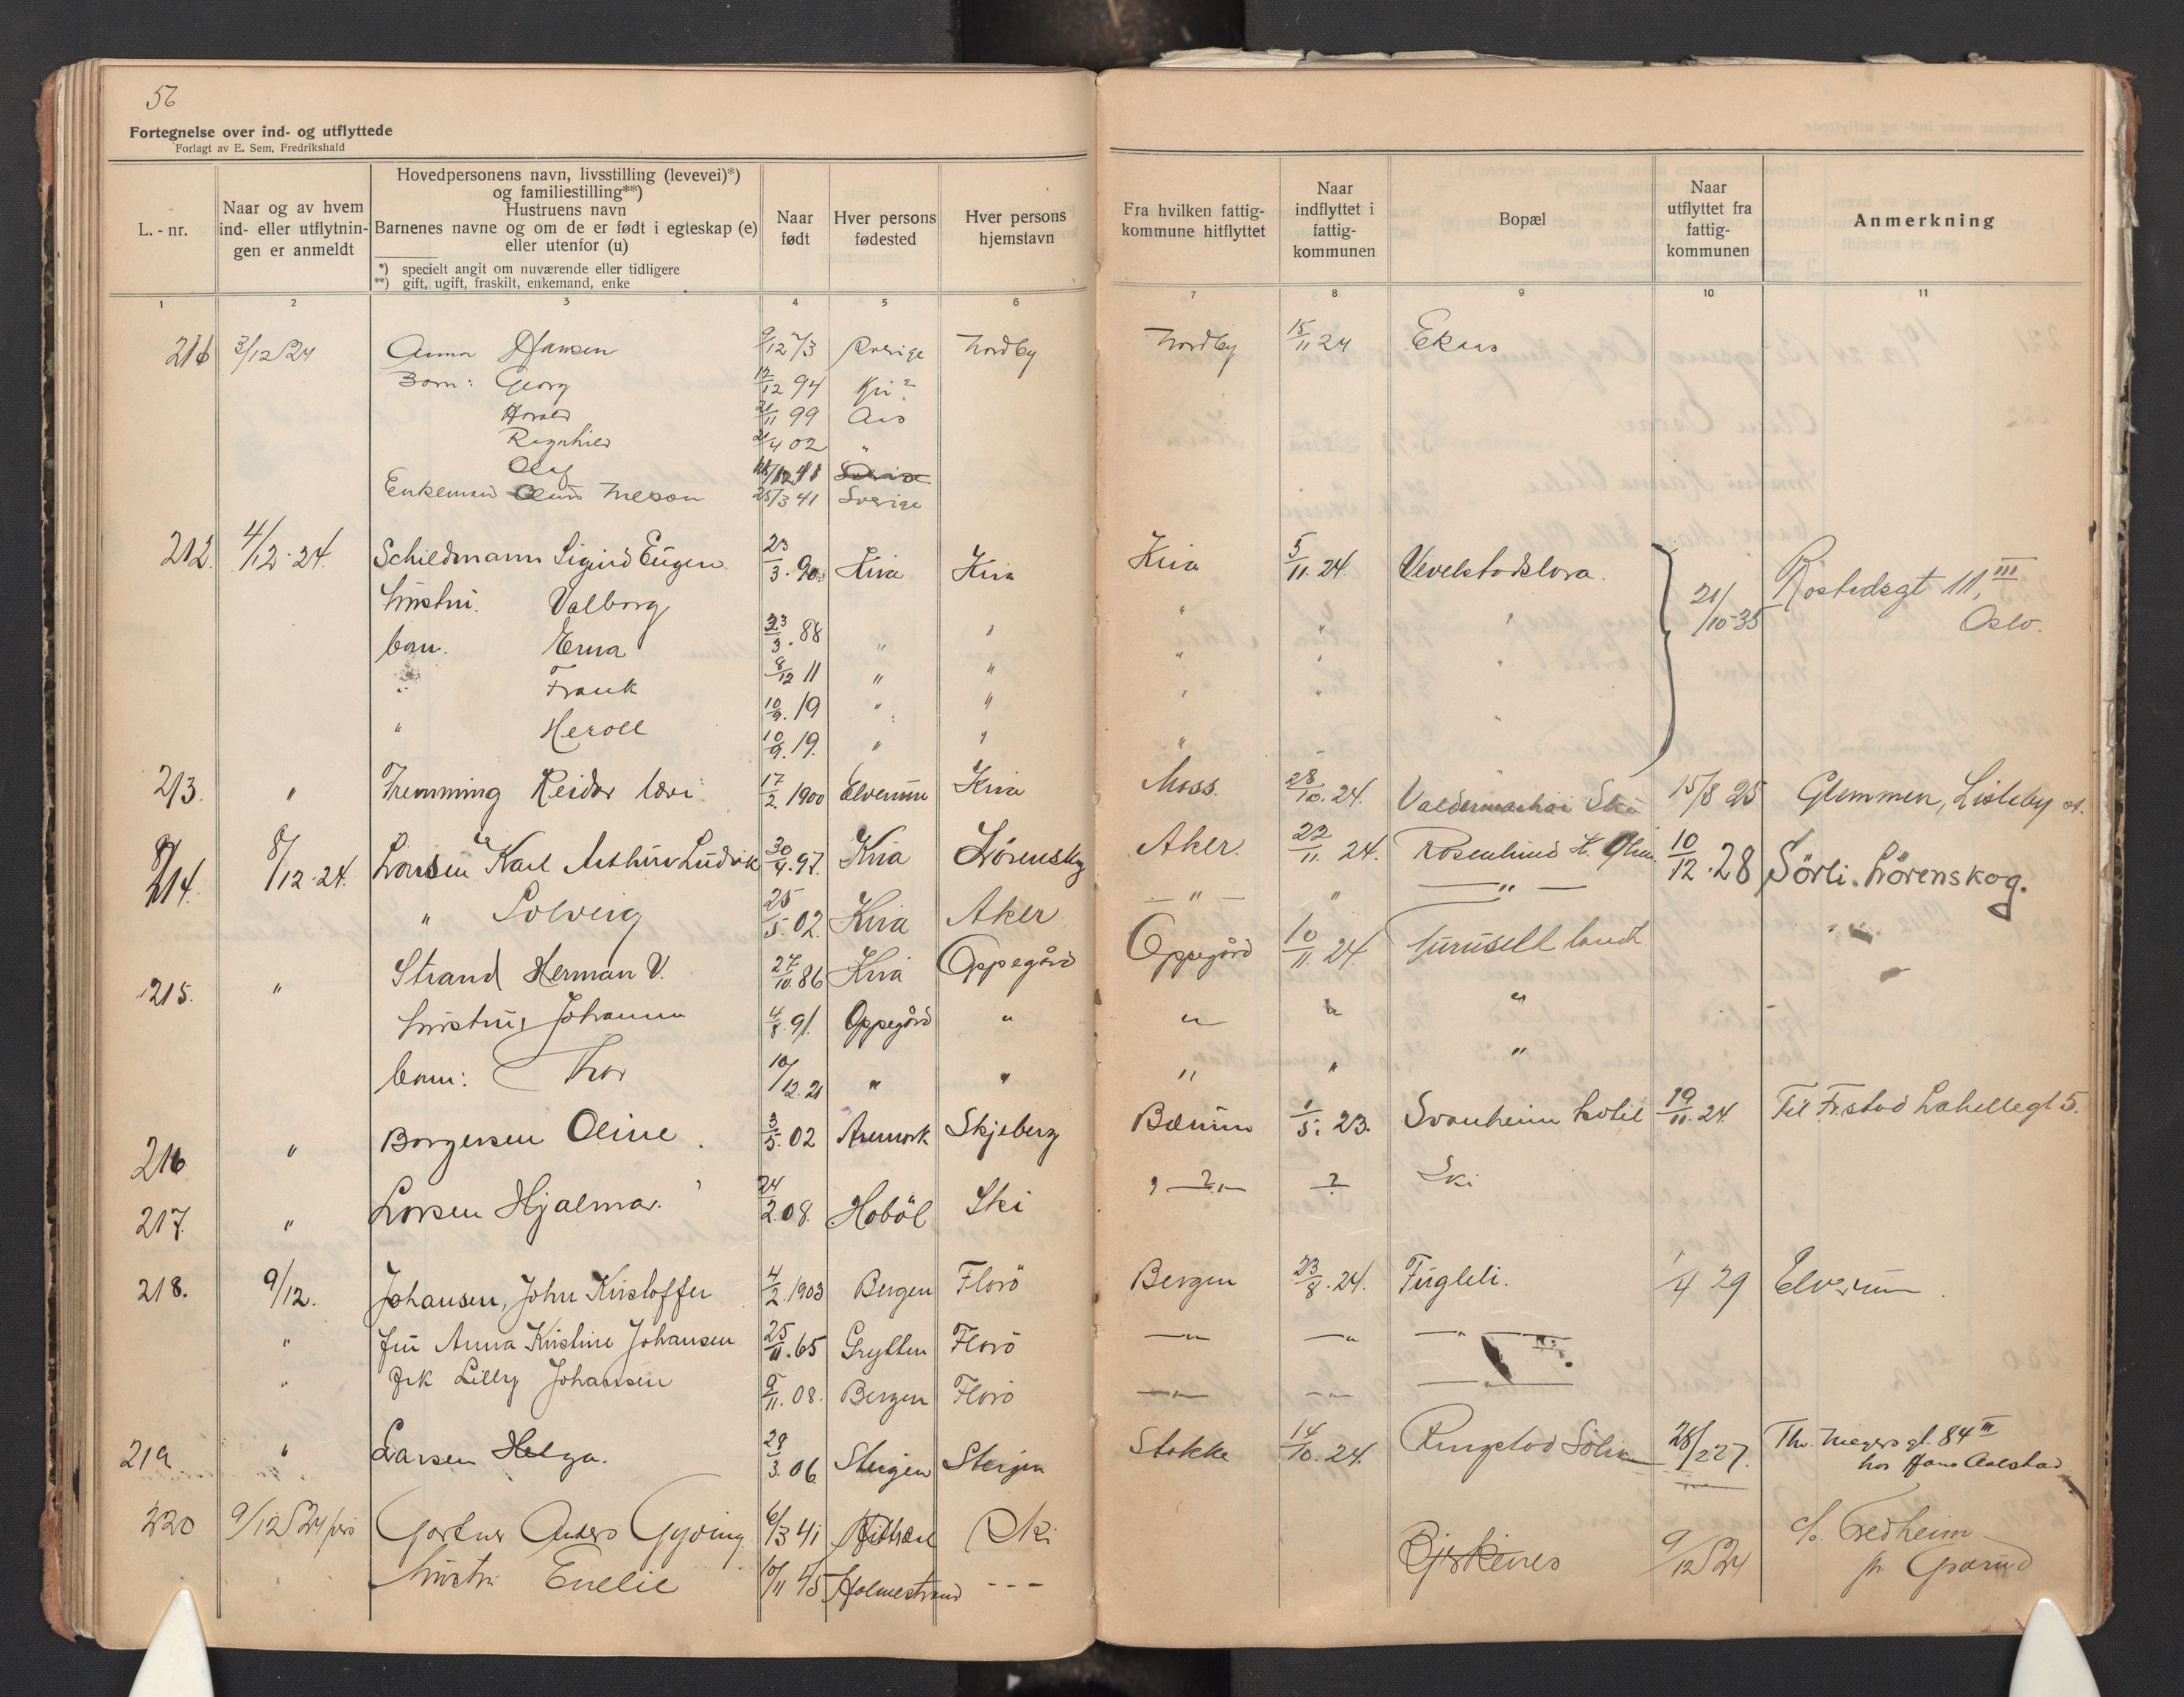 56
Fortegnelse over ind- og utflyttede
Forlagt av E. Sem, Fredrikshald
L. - nr.
Naar og av hvem ind- eller utflytnin- gen er anmeldt
Hovedpersonens navn, livsstilling (levevei)*)
og familiestilling**)
Hustruens navn
Barnenes navne og om de er født i egteskap (e)
eller utenfor (u)
*) specielt angit om nuværende eller tidligere
**) gift, ugift, fraskilt, enkemand, enke
Naar født
Hver persons fødested
Hver persons hjemstavn
Fra hvilken fattig- kommune hitflyttet
Naar indflyttet i fattig- kommunen
Bopæl
Naar utflyttet fra fattig- kommunen
Anmerkning
1 2 3 4 5 6 7 8 9 10 11
3/12 24 Anna Hansen 9/12 73 Sverige Nordby Nordby 15/11 24 Ekus
Barn: Georg 12/12 94
Harald 21/11 99 Aas
Ragnhild 21/4 02 "
Olaf
Enkemand Nilsson 25/3 41 Sverige
212. 4/12. 24. Schildmann Sigurd Eugen 23/3. 90. Kria Kria Kria 5/11. 24. Vevelstadslora. 21/10-35 Rostedsgt 11, III
hustru. Valborg 23/3. 88 " " " " " Oslo.
barn. Erna 8/12 11 " " " " "
" Frank 10/9. 19 " " " "
" Heroll 10/9. 19. " " "
213. " Fremming Reidar 17/2. 1900 Elverum Kria Moss. 28/10. 24. 15/8 25 Glemmen, Lisleby st.
214. 8/12. 24. Larsen Karl Arthur Ludvik 30/9. 97. Kria Lørenskog Aker. 22/11. 24. Rosenlund 10/12. 28 Sörli. Lörenskog.
" Solveig 25/5. 02. Kria Aker — " — " — " —
215. " Strand Herman V. 27/10. 86 Kria Oppegård Oppegård 10/11. 24.
hustru Johanna 4/8. 91. Oppegård " " " "
barn: Thor 10/12. 21 " " " " "
216 " Borgersen Oline. 3/5. 02 Aremark Skjeberg Bærum 1/5. 23. Svanheim hotel 19/11. 24. Til Fr.stad Lahellegt 5.
217. " Larsen Hjalmar. 24/2. 08. Hobøl Ski ? ? Ski
218. 9/12. Johansen, John Kristoffer 4/2. 1903 Bergen Florö Bergen 23/8. 24. Fugleli. 1/4 29 Elverum.
" fru Anna Kristine Johansen 25/11. 65 Grytten Florö — " — " — " —
" frk Lilly Johansen 9/11. 08. Bergen Florö — " — — " —
219 " Larsen Helga. 29/3. 06 Steigen Steigen Stokke 14/10. 24. Ringstad 28/2 27. Th. Meyers gt. 84 III
hos Hans Aalstad
220 9/12 24 Gartner Anders Gyving 6/3 41 Ski Bjerkenes 9/12 24 c/o. Fredheim
hustru Emelie 10/11 45 Holmestrand - - - pr. Grorud